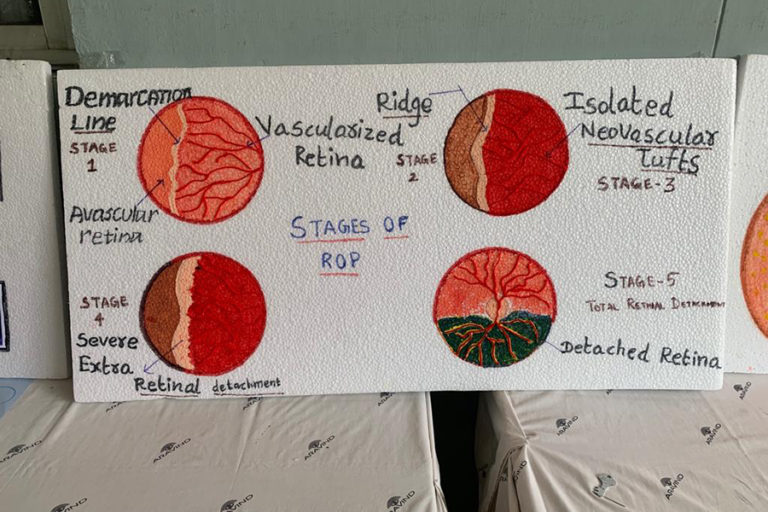 Demarcation
Line
STAGE
1
Vascularized
Retina
Avascular
retina
Ridge
STAGE
2
Isolated
Neovascular
Tufts
STAGE-3
STAGES OF
ROP
STAGE
4
Severe
Extra
Retinal detachment
STAGE-5
TOTAL RETINAL DETACHMENT
Detached Retina
ARAVIND
ARAVIND
ARAVIND
ARAVIND
ARAVIND
ARAVIND
ARAVIND
ARAVIND
ARAVIND
ARAVIND